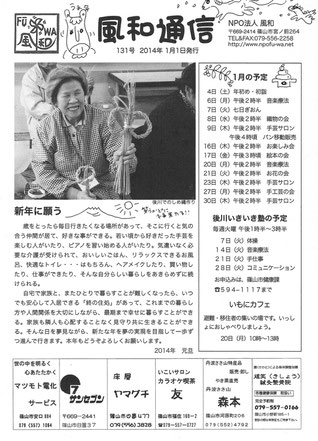 FŪ WA
風和
風和通信
131号 2014年1月1日発行
NPO法人 風和
〒669-2414 篠山市宮ノ前264
TEL&FAX:079-556-2258
http://www.npofu-wa.net
後川でのしめ縄作り
1月の予定
4日（土）年初め・初詣
6日（月）午後2時半 音楽療法
7日（火）七日ぎおん
8日（水）午後2時半 織物の会
9日（木）午後2時半 手芸サロン
午後4時頃 パン移動販売
16日（木）午後2時半 お楽しみ会
17日（金）午後3時頃 絵本の会
20日（月）午後2時半 音楽療法
21日（火）午後2時半 お花の会
23日（木）午後2時半 手芸サロン
27日（月）午後2時半 手工芸の会
30日（木）午後2時半 手芸サロン
新年に願う
歳をとったら毎日行きたくなる場所があって、そこに行くと気の
合う仲間が居て、好きな事ができる。若い頃から好きだった手芸を
楽しむ人がいたり、ピアノを習い始める人がいたり。気遣いなく必
要な介護が受けられて、おいしいごはん、リラックスできるお風
呂、快適なトイレ・・・はもちろん、ヘアメイクしたり、買い物し
たり、仕事ができたり、そんな自分らしい暮らしをあきらめずに続
けられる。
自宅で家族と、またひとりで暮すことが難しくなったら、いつ
でも安心して入居できる「終の住処」があって、これまでの暮らし
方や人間関係を大切にしながら、最期まで幸せに暮らすことができ
る。家族も隣人も心配することなく見守り共に生きることができる。
そんな日を夢見ながら、新たな年を夢の実現を目指して一歩ず
つ進んで行きます。本年もどうぞよろしくお願いします。
2014年 元旦
後川いきいき塾の予定
毎週火曜 午後1時半～3時半
7日（火）体操
14日（火）音楽療法
21日（火）手仕事
28日（火）コミュニケーション
お申込みは、篠山市健康課
594-1117まで
いもにカフェ
避難・移住者の集いの場です。いっ
しょにおしゃべりしましょう。
20日（月）10時～13時
世の中を明るく
心あたたかく
マツモト電化
サービス
篠山市安口884
電話（079）
557（1084）
サンセブン
床屋
ヤマグチ
〒669-2441
篠山市日置477
TEL（079）
いこいサロン
カラオケ喫茶
友
篠山市福住168-2
電話
079-557-0727
丹波ささ山特産品
販売 卸し
やき栗直売
丹波ささ山
森本
篠山市川原420
電話（079）
552（4792）
鍼灸整骨院
完全予約制
079-557-0166